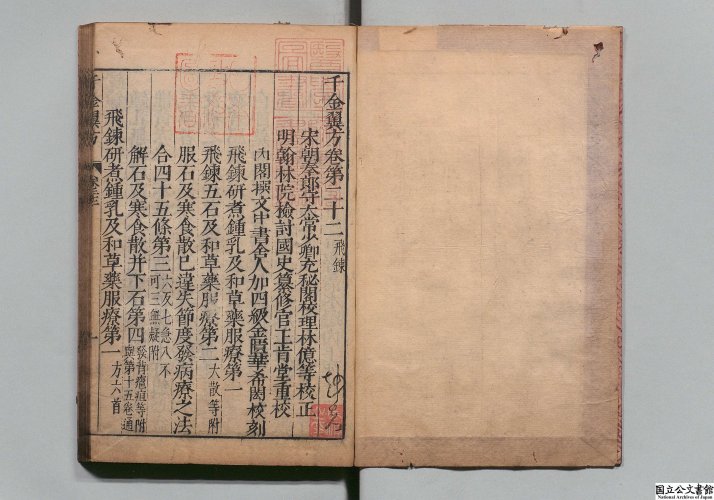 千金翼方卷第二十二 飛鍊
宋朝奉郎守太常少卿充秘閣校理林億等校正
明翰林院檢討國史纂修官王肯堂重校
內閣撰文中書舍人加四級金匱華希閎校刻
飛鍊研煮鍾乳及和草藥服療第一
飛鍊五石及和草藥服療第二 大散等附
服石及寒食散已違失節度發病療之法
合四十五條第三 六反七急八不可三無疑附
解石及寒食散并下石第四 發背癰疽等附與第十五卷通
飛鍊研煮鍾乳及和草藥服療第一 方六首
千金翼方
国立公文書館
National Archives of Japan